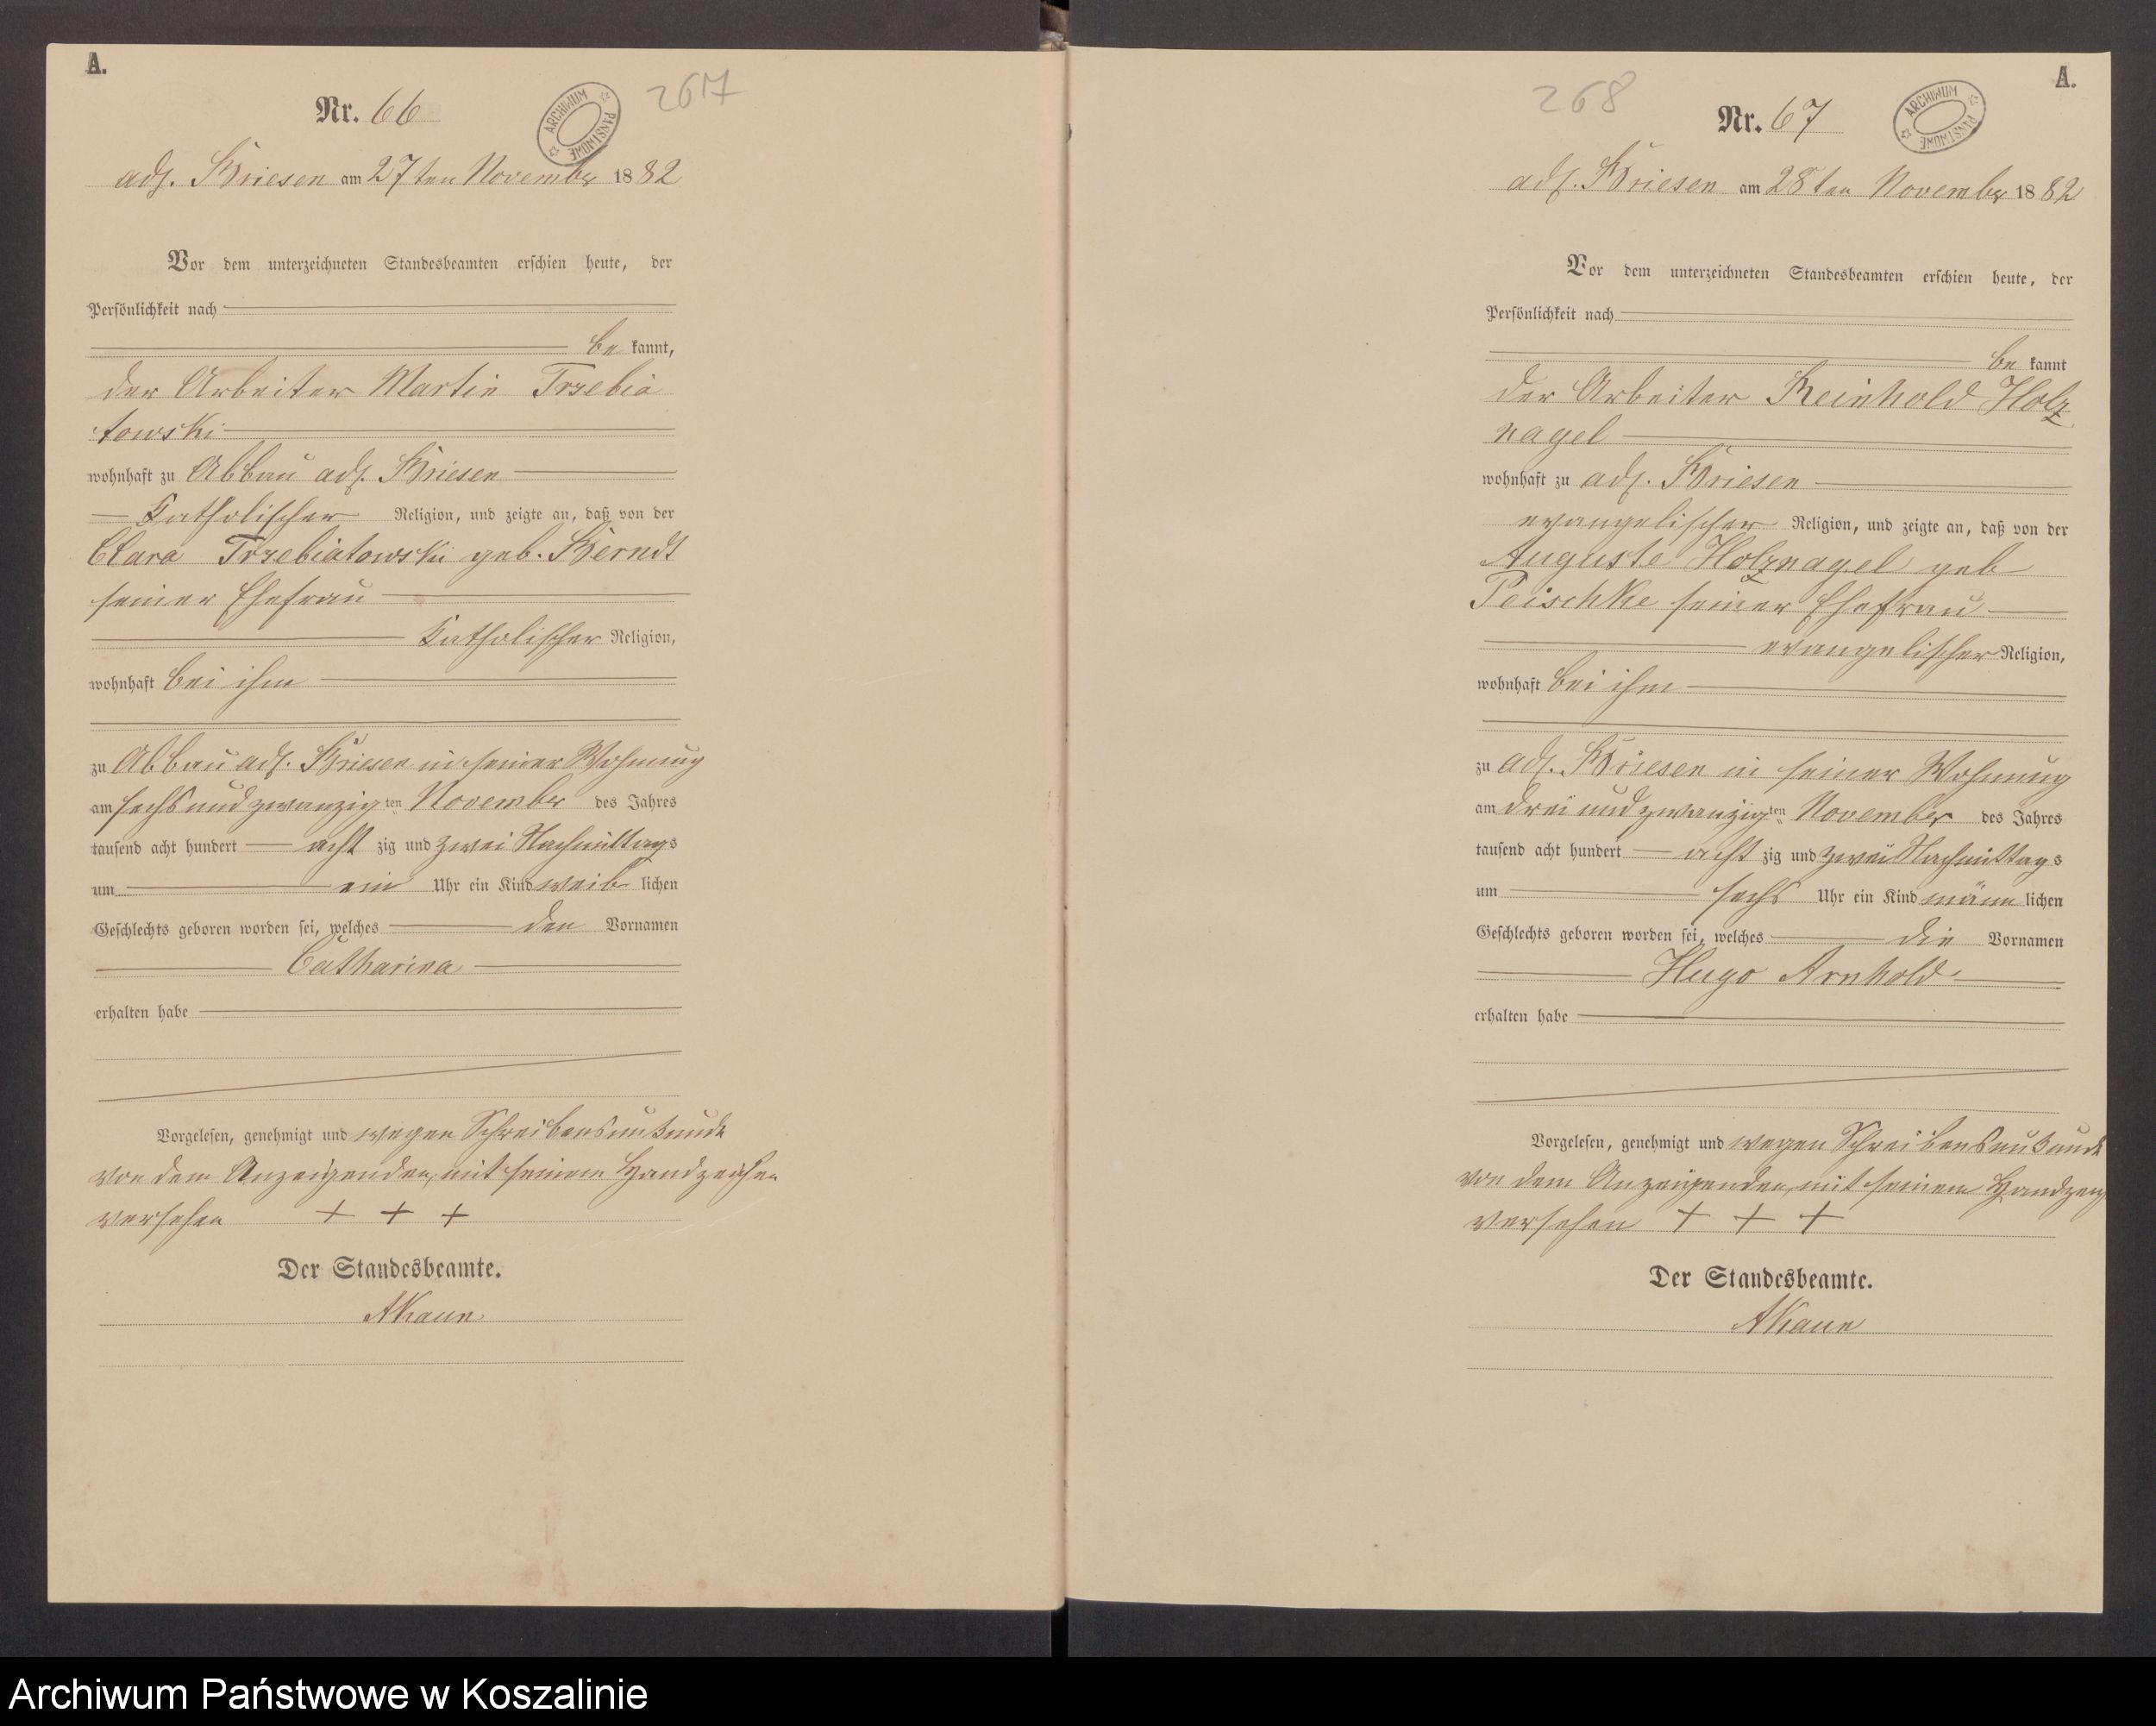 A.
Nr. 66
ARCHIWUM PAŃSTWOWE
267
adl. Briesen am 27ten November 1882
Vor dem unterzeichneten Standesbeamten erschien heute, der
Persönlichkeit nach
be kannt,
der Arbeiter Martin Trzebia
towski
wohnhaft zu Abbau adl. Briesen
katholischer Religion, und zeigte an, daß von der
Clara Trzebiatowski geb. Berndt
seiner Ehefrau
katholischer Religion,
wohnhaft bei ihm
zu Abbau adl. Briesen in seiner Wohnung
am sechsundzwanzig ten November des Jahres
tausend acht hundert acht zig und zwei Nachmittags
um ein Uhr ein Kind weib lichen
Geschlechts geboren worden sei, welches den Vornamen
Catharina
erhalten habe
Vorgelesen, genehmigt und wegen Schreibensunkunde
von dem Anzeigenden, mit seinem Handzeichen
versehen + + +
Der Standesbeamte.
AKaun
A.
268
Nr. 67
ARCHIWUM PAŃSTWOWE
adl. Briesen am 28ten November 1882
Vor dem unterzeichneten Standesbeamten erschien heute, der
Persönlichkeit nach
be kannt
der Arbeiter Reinhold Holz
nagel
wohnhaft zu adl. Briesen
evangelischer Religion, und zeigte an, daß von der
Auguste Holznagel geb
Peischke seiner Ehefrau
evangelischer Religion,
wohnhaft bei ihm
zu adl. Briesen in seiner Wohnung
am drei und zwanzig ten November des Jahres
tausend acht hundert acht zig und zwei Nachmittags
um sechs Uhr ein Kind männ lichen
Geschlechts geboren worden sei, welches die Vornamen
Hugo Arnhold
erhalten habe
Vorgelesen, genehmigt und wegen Schreibensunkunde
von dem Anzeigenden, mit seinem Handzeig
versehen + + +
Der Standesbeamte.
AKaun
Archiwum Państwowe w Koszalinie